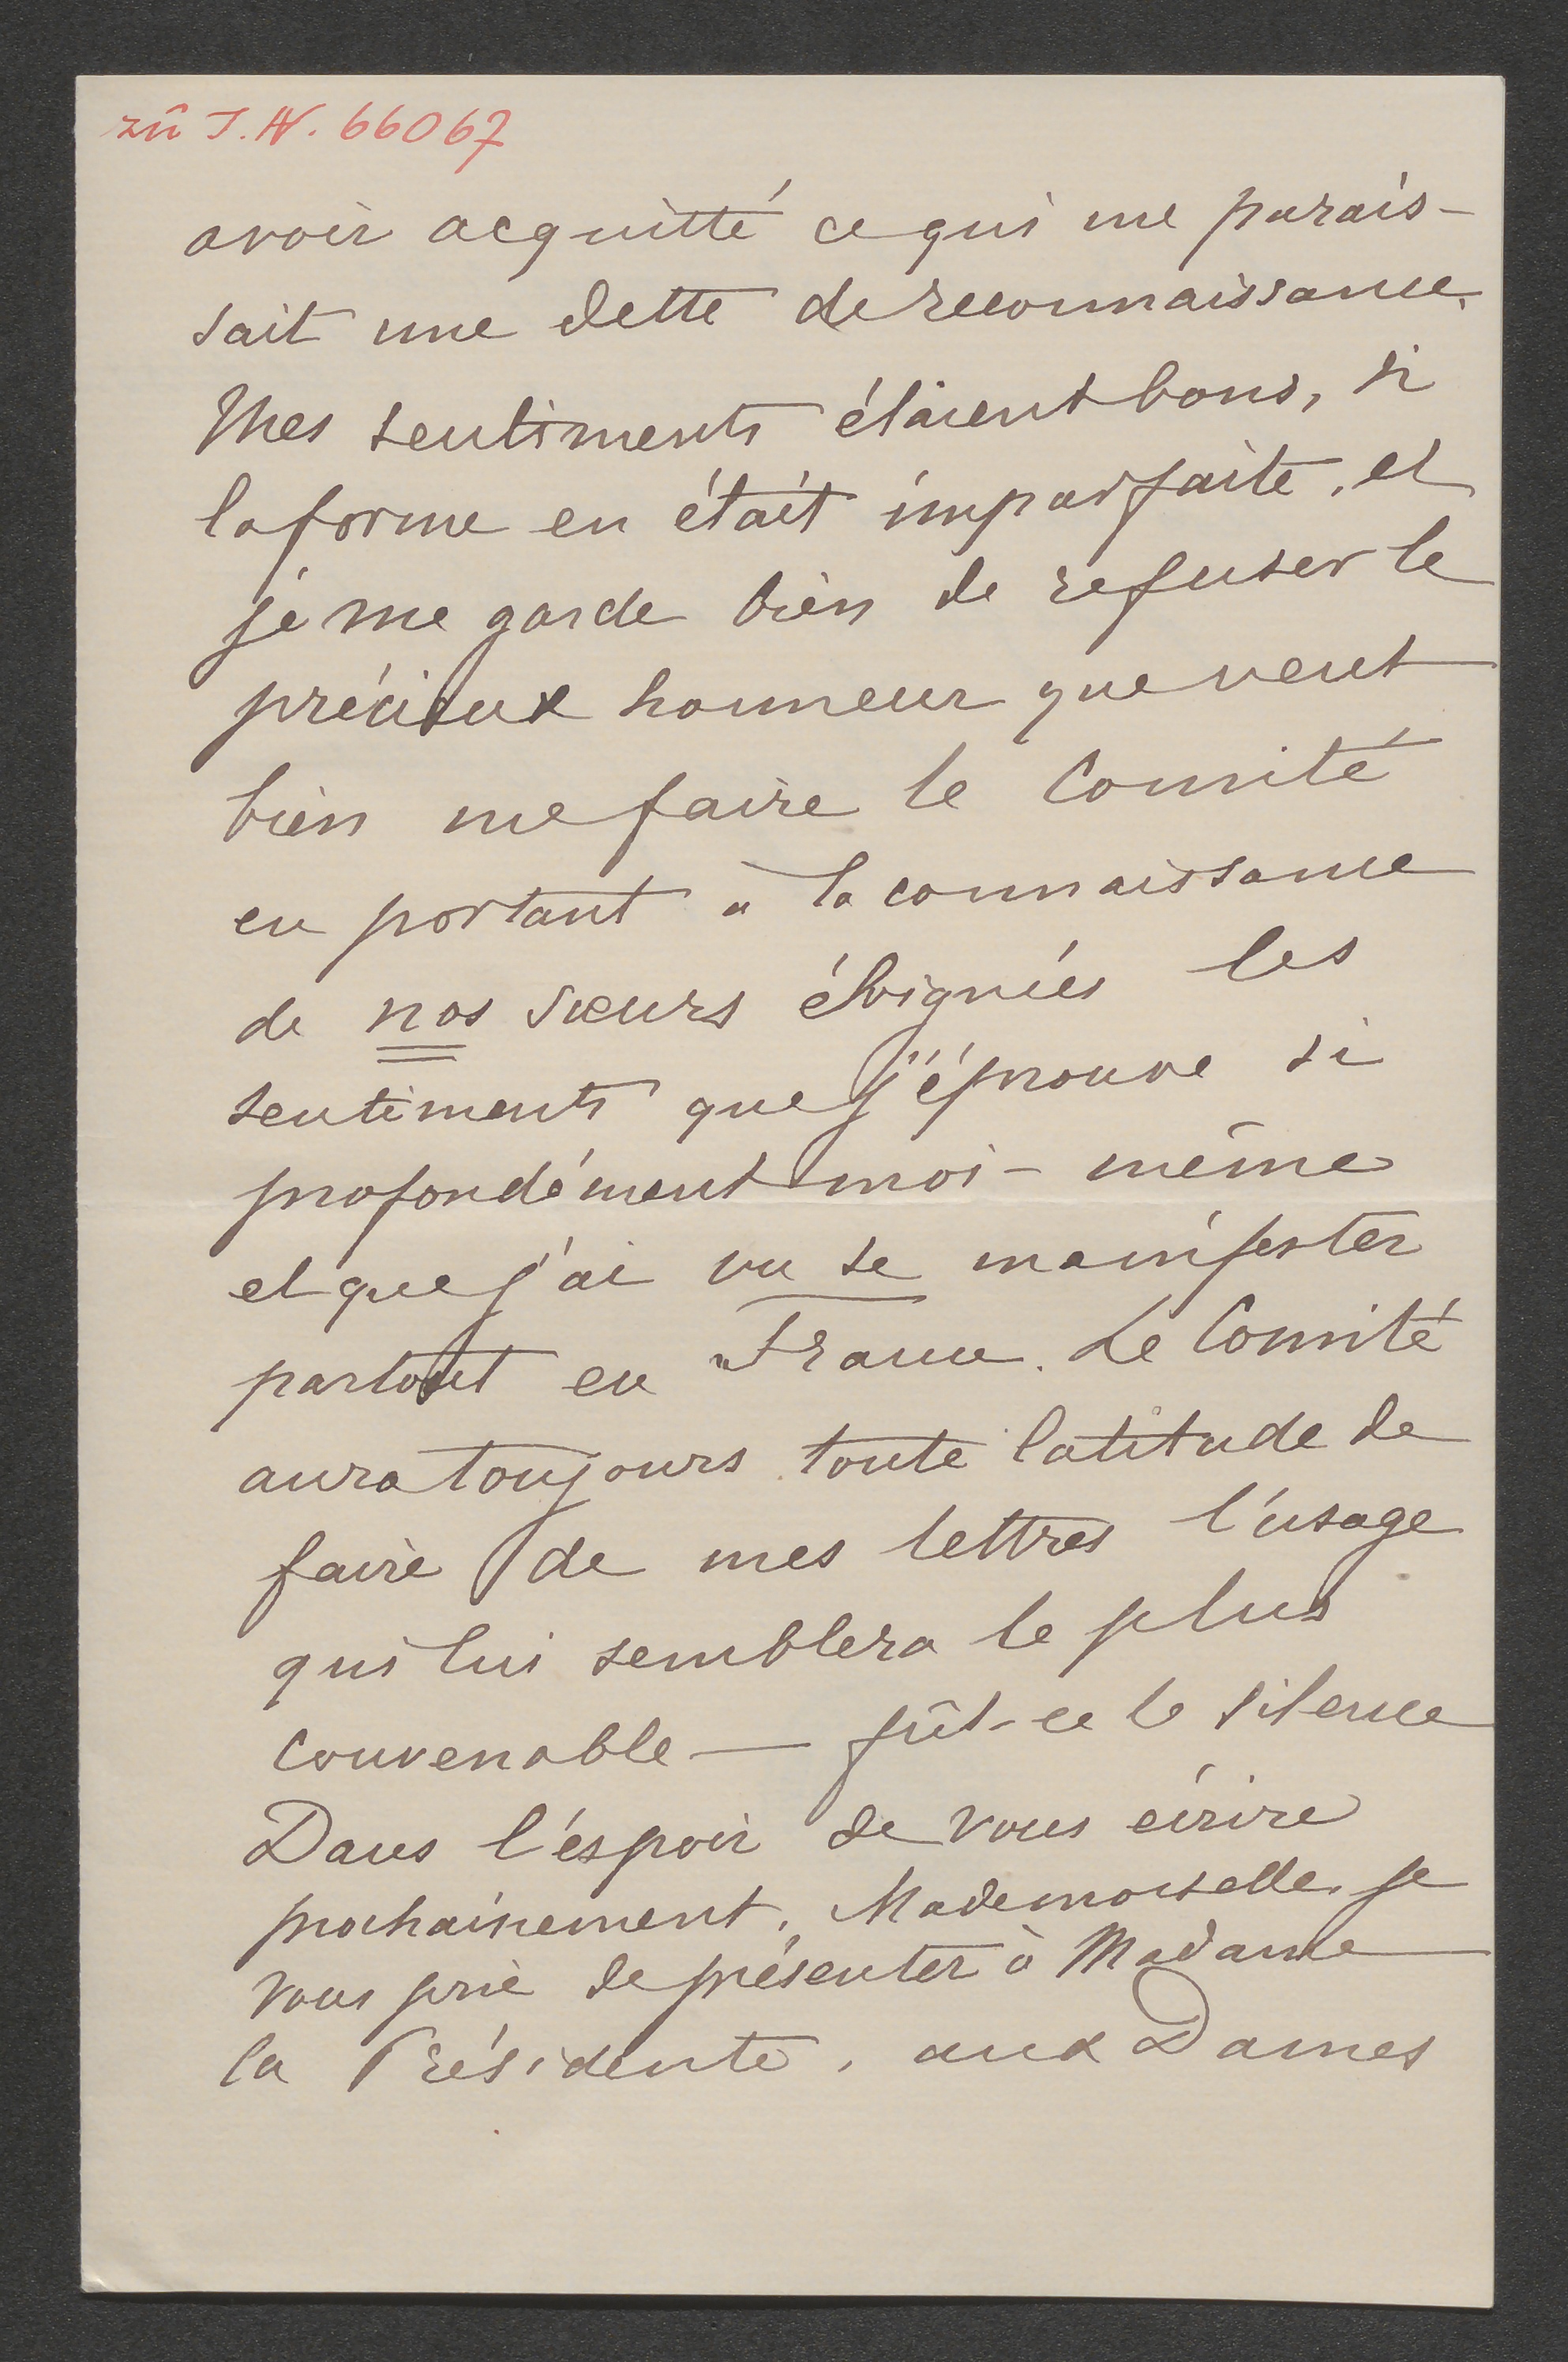 zu I.N. 66067
avoir acquitté ce qui me parais-
sait une dette de reconnaissance.
Mes sentiments étaient bons, si
la forme en était imparfaite, et
je me garde bien de refuser le
précieux honneur que veut
bien me faire le Comité
en portant à la connaissance
de nos sœurs éloignées les
sentiments que j'éprouve si
profondément moi-même
et que j'ai vu se manifester
partout en France. Le Comité
aura toujours toute latitude de
faire de mes lettres l'usage
qui lui semblera le plus
convenable — fût-ce le silence
Dans l'espoir de vous écrire
prochainement, Mademoiselle, je
vous prie de présenter à Madame
la Présidente, aux Dames